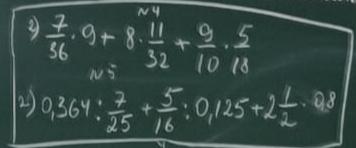 №4
2) 7/36 · 9 + 8 · 11/32 + 9/10 · 5/18
№5
2) 0,364 : 7/25 + 5/16 : 0,125 + 2 1/2 · 0,8